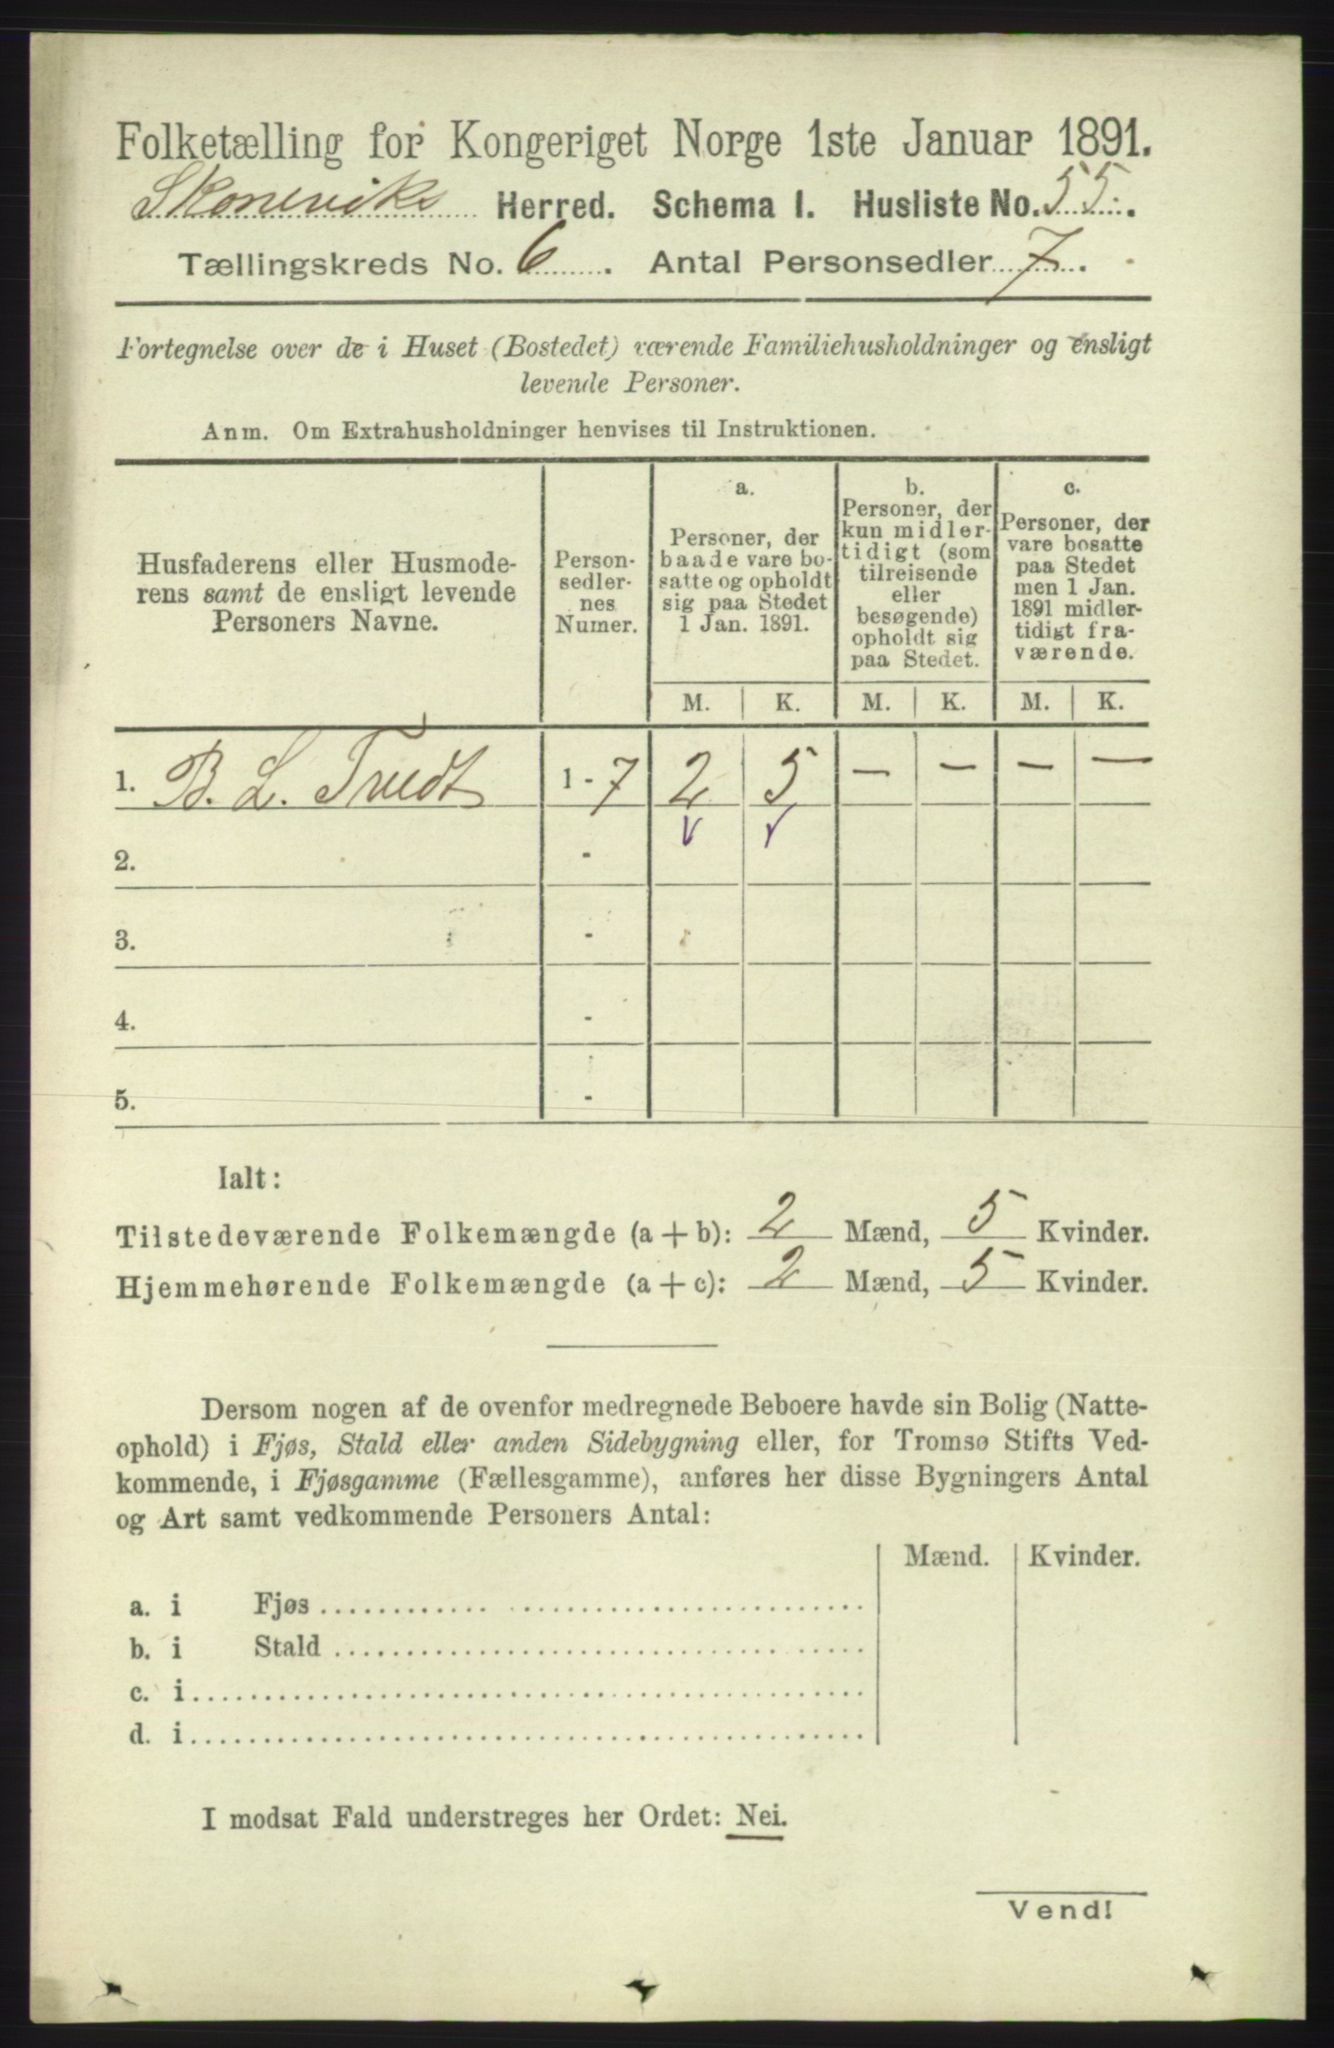 Folketælling for Kongeriget Norge 1ste Januar 1891.
Skoneviks Herred. Schema I. Husliste No. 55.
Tællingskreds No. 6. Antal Personsedler 7.
Fortegnelse over de i Huset (Bostedet) værende Familiehusholdninger og ensligt
levende Personer.
Anm. Om Extrahusholdninger henvises til Instruktionen.
Husfaderens eller Husmode-
rens samt de ensligt levende
Personers Navne.
Person-
sedler-
nes
Numer.
a.
Personer, der
baade vare bo-
satte og opholdt
sig paa Stedet
1 Jan. 1891.
b.
Personer, der
kun midler-
tidigt (som
tilreisende
eller
besøgende)
opholdt sig
paa Stedet.
c.
Personer, der
vare bosatte
paa Stedet
men 1 Jan.
1891 midler-
tidigt fra-
værende.
M. K. M. K. M. K.
1. B. L. Tvedt 1 - 7 2 5 — — — —
2. -
3. -
4. -
5. -
Ialt:
Tilstedeværende Folkemængde (a + b): 2 Mænd, 5 Kvinder.
Hjemmehørende Folkemængde (a + c): 2 Mænd, 5 Kvinder.
Dersom nogen af de ovenfor medregnede Beboere havde sin Bolig (Natte-
ophold) i Fjøs, Stald eller anden Sidebygning eller, for Tromsø Stifts Ved-
kommende, i Fjøsgamme (Fællesgamme), anføres her disse Bygningers Antal
og Art samt vedkommende Personers Antal:
Mænd. Kvinder.
a. i Fjøs
b. i Stald
c. i
d. i
I modsat Fald understreges her Ordet: Nei.
Vend!